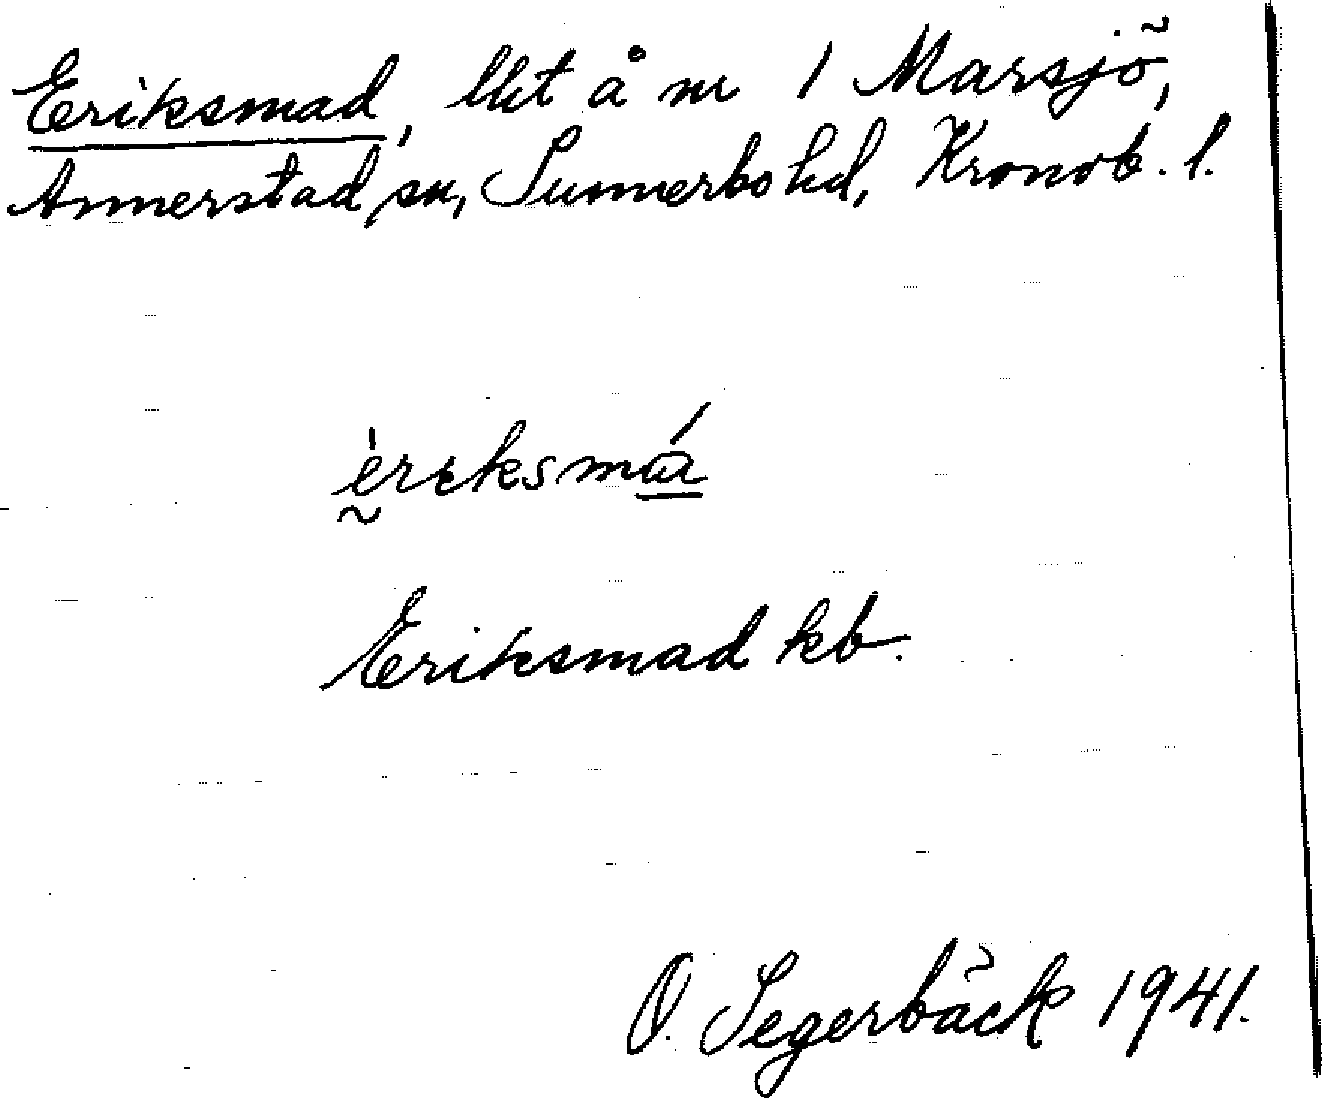 Eriksmad, lht å nr 1 Marsjö,
Annerstad sn, Sunnerbo hd, Kronob. l.
èrɩksmá
Eriksmad kb.
O. Segerbäck 1941.